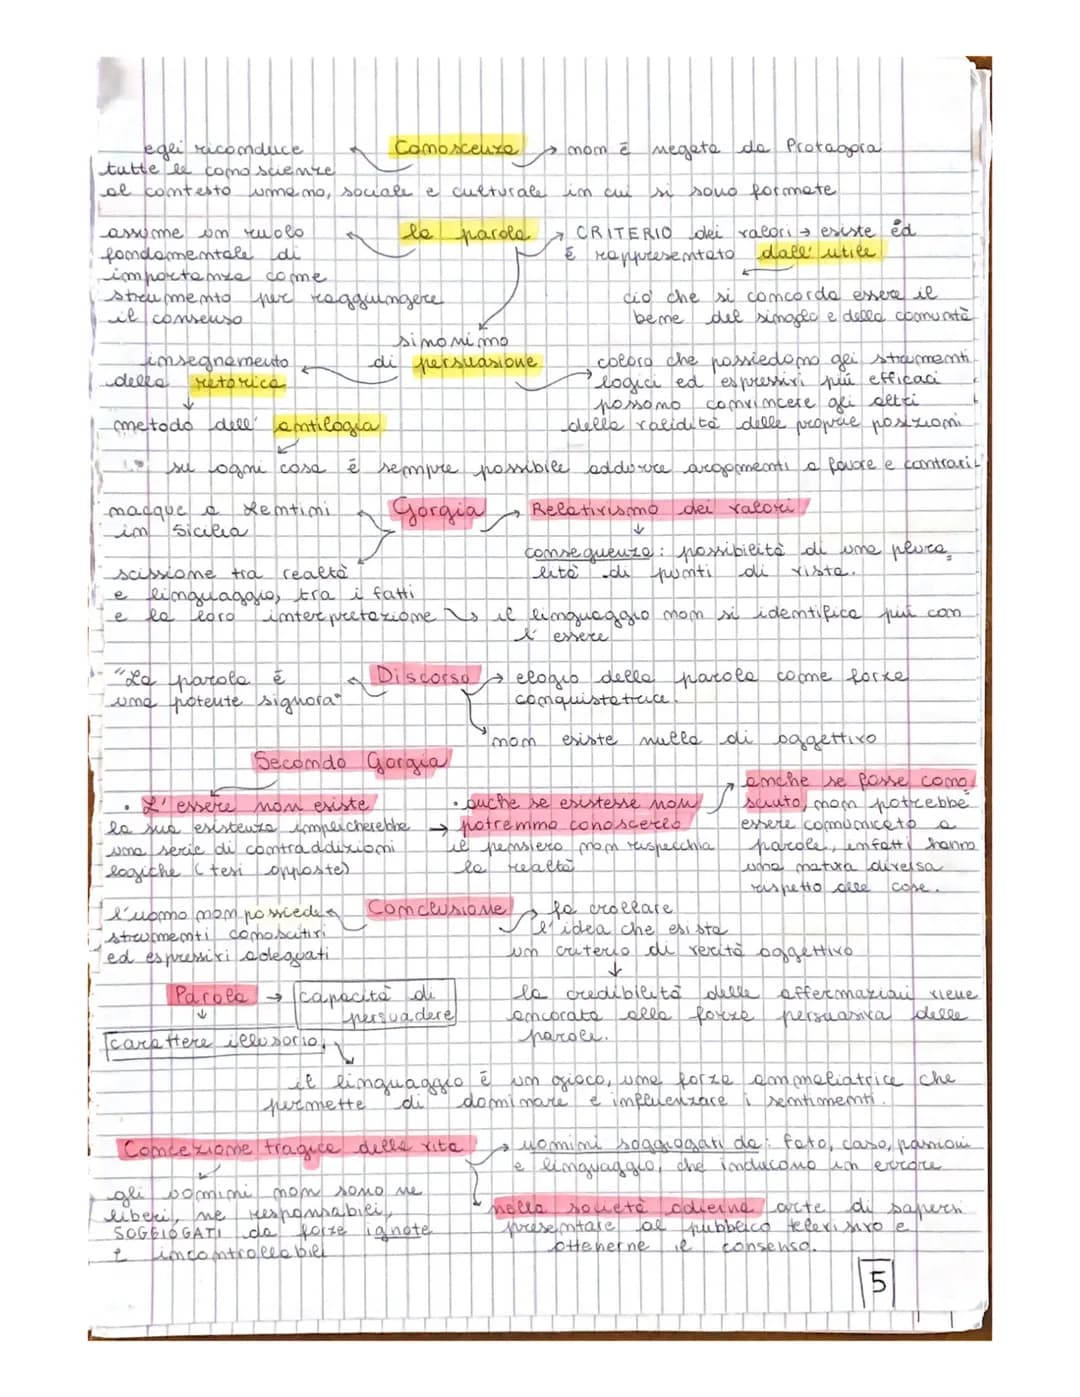 egli riconduce Conoscenza → non è negata da Protagora
tutte le conoscienze
al contesto umano, sociale e culturale in cui si sono formate
assume un ruolo la parola → CRITERIO dei valori → esiste ed
fondamentale di è rappresentato dall'utile
importanza come
strumento per raggiungere ciò che si concorda essere il
il consenso bene del singolo e della comunità
sinonimo
di persuasione
insegnamento
della retorica
coloro che possiedono gli strumenti
logici ed espressivi più efficaci
possono convincere gli altri
della validità delle proprie posizioni
metodo dell'antilogia
su ogni cosa è sempre possibile addurre argomenti a favore e contrari
nacque a Lentini Gorgia → Relativismo dei valori
in Sicilia
conseguenza: possibilità di una plura
lità di punti di vista.
scissione tra realtà
e linguaggio, tra i fatti
e la loro interpretazione → il linguaggio non si identifica più con
l'essere
"La parola è Discorso → elogio della parola come forza
una potente signora" conquistatrice.
non esiste nulla di oggettivo
Secondo Gorgia
• L'essere non esiste
la sua esistenza implicherebbe
una serie di contraddizioni
logiche (tesi opposte)
• anche se esistesse non
→ potremmo conoscerlo
il pensiero non rispecchia
la realtà
→ anche se fosse cono
sciuto, non potrebbe
essere comunicato a
parole, infatti hanno
una natura diversa
rispetto alle cose.
l'uomo non possiede Conclusione → fa crollare
strumenti conoscitivi l'idea che esista
ed espressivi adeguati un criterio di verità oggettivo
Parola → capacità di
persuadere
la credibilità delle affermazioni viene
ancorata alla forza persuasiva delle
parole.
carattere illusorio
il linguaggio è un gioco, una forza ammaliatrice che
permette di dominare e influenzare i sentimenti.
Concezione tragica della vita → uomini soggiogati da: fato, caso, passioni
e linguaggio, che inducono in errore
gli uomini non sono ne
liberi, ne responsabili,
SOGGIOGATI da forze ignote
e incontrollabili
nella società odierna arte di sapersi
presentare al pubblico televisivo e
ottenerne il consenso.
5